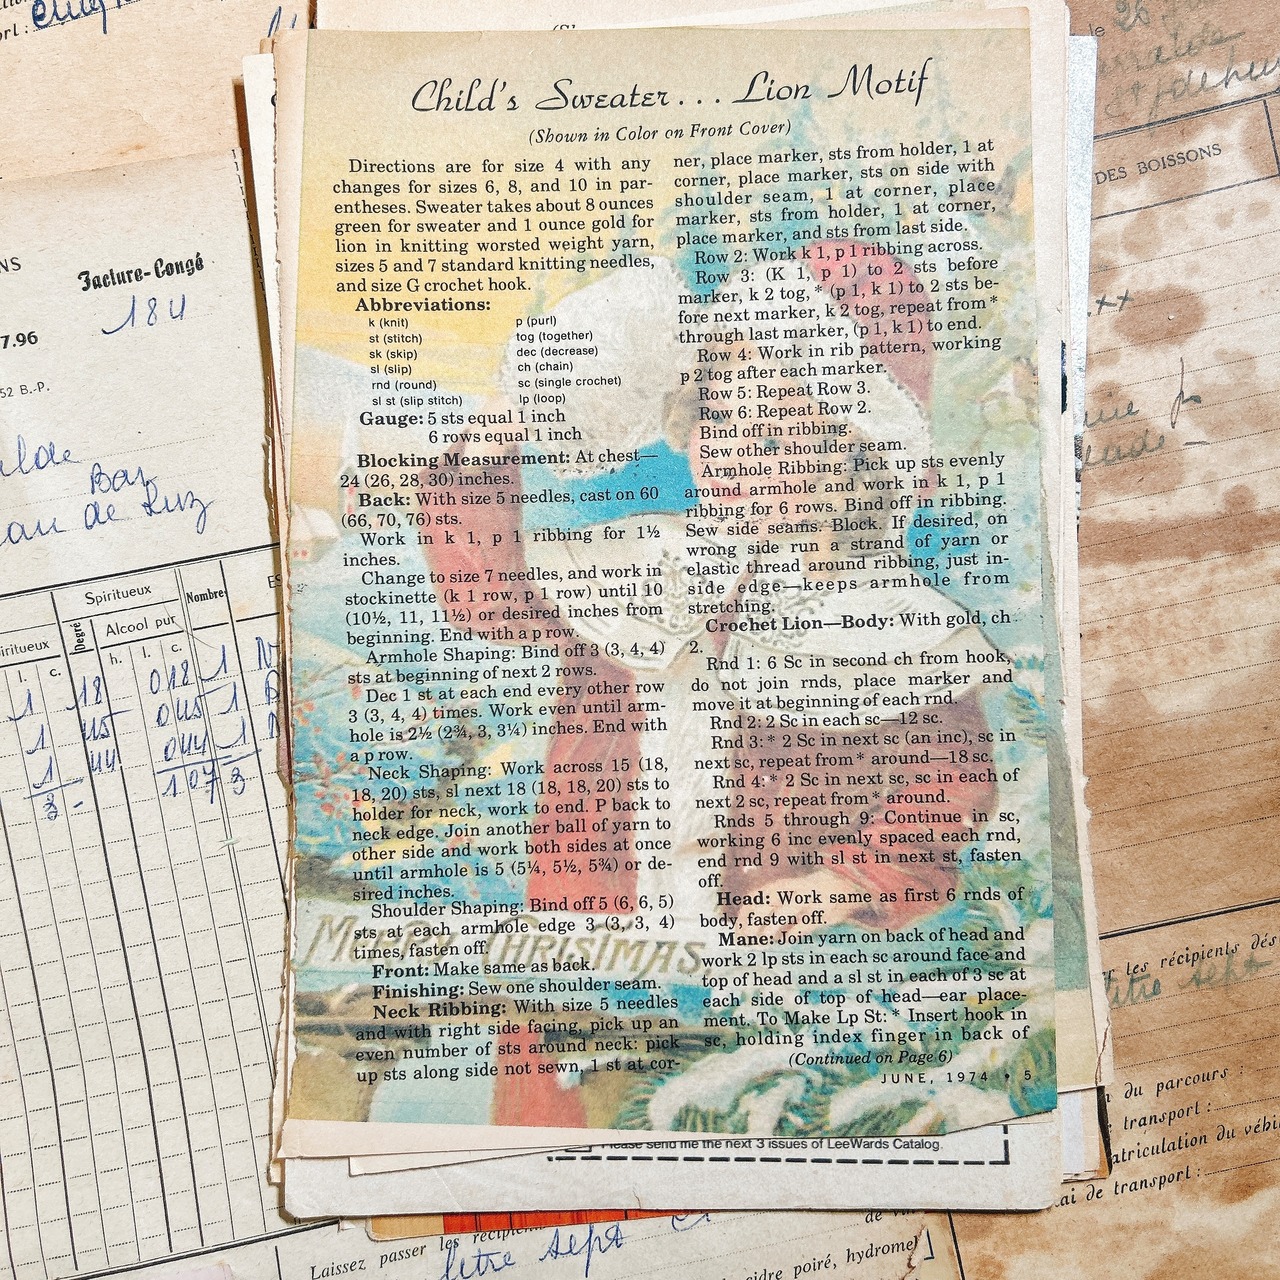 Child's Sweater... Lion Motif
(Shown in Color on Front Cover)
Directions are for size 4 with any
changes for sizes 6, 8, and 10 in par-
entheses. Sweater takes about 8 ounces
green for sweater and 1 ounce gold for
lion in knitting worsted weight yarn,
sizes 5 and 7 standard knitting needles,
and size G crochet hook.
Abbreviations:
k (knit)
st (stitch)
sk (skip)
sl (slip)
rnd (round)
sl st (slip stitch)
p (purl)
tog (together)
dec (decrease)
ch (chain)
sc (single crochet)
lp (loop)
Gauge: 5 sts equal 1 inch
6 rows equal 1 inch
Blocking Measurement: At chest—
24 (26, 28, 30) inches.
Back: With size 5 needles, cast on 60
(66, 70, 76) sts.
Work in k 1, p 1 ribbing for 1½
inches.
Change to size 7 needles, and work in
stockinette (k 1 row, p 1 row) until 10
(10½, 11, 11½) or desired inches from
beginning. End with a p row.
Armhole Shaping: Bind off 3 (3, 4, 4)
sts at beginning of next 2 rows.
Dec 1 st at each end every other row
3 (3, 4, 4) times. Work even until arm-
hole is 2½ (2¾, 3, 3¼) inches. End with
a p row.
Neck Shaping: Work across 15 (18,
18, 20) sts, sl next 18 (18, 18, 20) sts to
holder for neck, work to end. P back to
neck edge. Join another ball of yarn to
other side and work both sides at once
until armhole is 5 (5¼, 5½, 5¾) or de-
sired inches.
Shoulder Shaping: Bind off 5 (6, 6, 5)
sts at each armhole edge 3 (3, 3, 4)
times, fasten off.
Front: Make same as back.
Finishing: Sew one shoulder seam.
Neck Ribbing: With size 5 needles
and with right side facing, pick up an
even number of sts around neck: pick
up sts along side not sewn, 1 st at cor-
ner, place marker, sts from holder, 1 at
corner, place marker, sts on side with
shoulder seam, 1 at corner, place
marker, sts from holder, 1 at corner,
place marker, and sts from last side.
Row 2: Work k 1, p 1 ribbing across.
Row 3: (K 1, p 1) to 2 sts before
marker, k 2 tog, * (p 1, k 1) to 2 sts be-
fore next marker, k 2 tog, repeat from *
through last marker, (p 1, k 1) to end.
Row 4: Work in rib pattern, working
p 2 tog after each marker.
Row 5: Repeat Row 3.
Row 6: Repeat Row 2.
Bind off in ribbing.
Sew other shoulder seam.
Armhole Ribbing: Pick up sts evenly
around armhole and work in k 1, p 1
ribbing for 6 rows. Bind off in ribbing.
Sew side seams. Block. If desired, on
wrong side run a strand of yarn or
elastic thread around ribbing, just in-
side edge—keeps armhole from
stretching.
Crochet Lion—Body: With gold, ch
2.
Rnd 1: 6 Sc in second ch from hook,
do not join rnds, place marker and
move it at beginning of each rnd.
Rnd 2: 2 Sc in each sc—12 sc.
Rnd 3: * 2 Sc in next sc (an inc), sc in
next sc, repeat from * around—18 sc.
Rnd 4: * 2 Sc in next sc, sc in each of
next 2 sc, repeat from * around.
Rnds 5 through 9: Continue in sc,
working 6 inc evenly spaced each rnd,
end rnd 9 with sl st in next st, fasten
off.
Head: Work same as first 6 rnds of
body, fasten off.
Mane: Join yarn on back of head and
work 2 lp sts in each sc around face and
top of head and a sl st in each of 3 sc at
each side of top of head—ear place-
ment. To Make Lp St: * Insert hook in
sc, holding index finger in back of
(Continued on Page 6)
JUNE, 1974 • 5
Merry Christmas
Please send me the next 3 issues of LeeWards Catalog.
Facture-Congé
184
7.96
52 B.-P.
Bar
de Luz
Spiritueux
Nombre
Degré
Alcool pur
l. c. h. l. c.
1 18 018 1
1 45 045 1
1 44 044 1
3 - 107 3
DES BOISSONS
les récipients
du parcours :
transport :
de transport :
Laissez passer les
litre sept
cidre poiré, hydromel